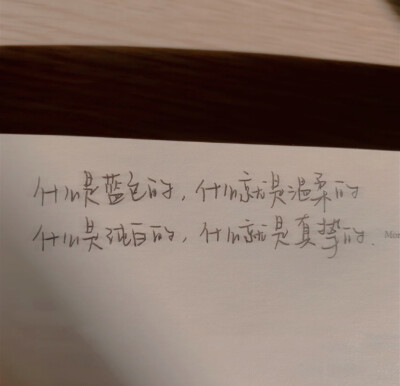 什么是蓝色的，什么就是温柔的
什么是纯白的，什么就是真挚的.